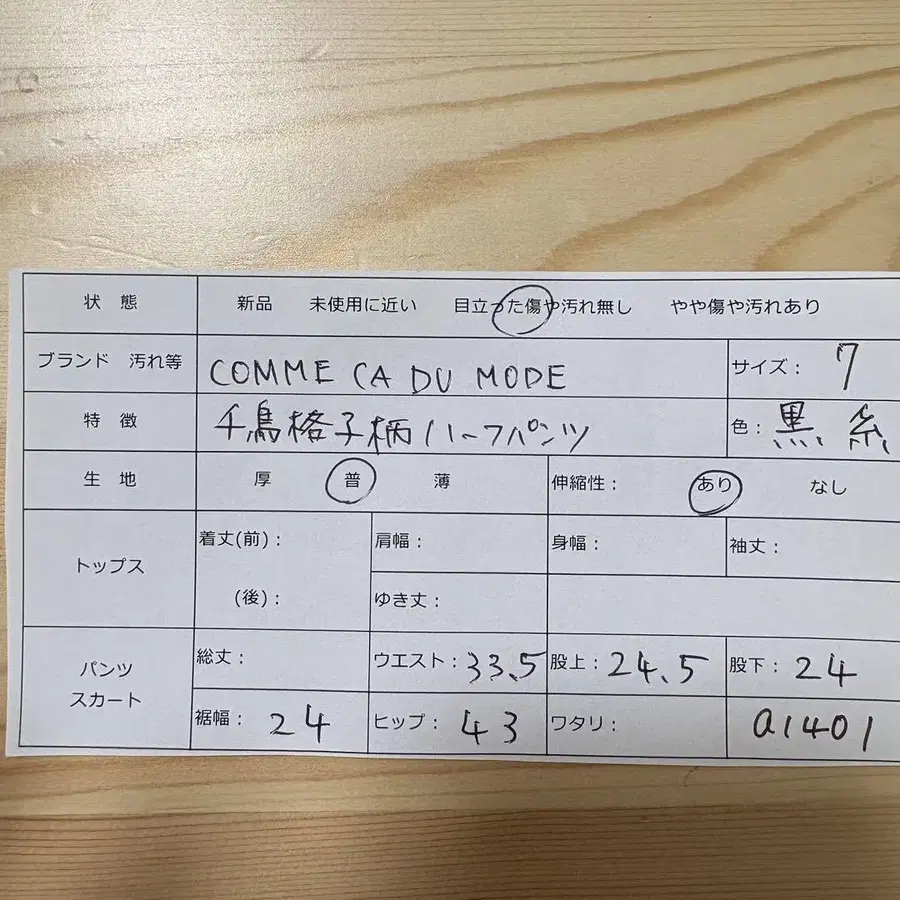 状 態 新品 未使用に近い 目立った傷や汚れ無し やや傷や汚れあり
ブランド 汚れ等 COMME CA DU MODE サイズ： 7
特 徴 千鳥格子柄ハーフパンツ 色： 黒、糸
生 地 厚 普 薄 伸縮性： あり なし
トップス 着丈(前)： 肩幅： 身幅： 袖丈：
(後)： ゆき丈：
パンツ スカート 総丈： ウエスト：33.5 股上：24.5 股下：24
裾幅：24 ヒップ：43 ワタリ： a1401